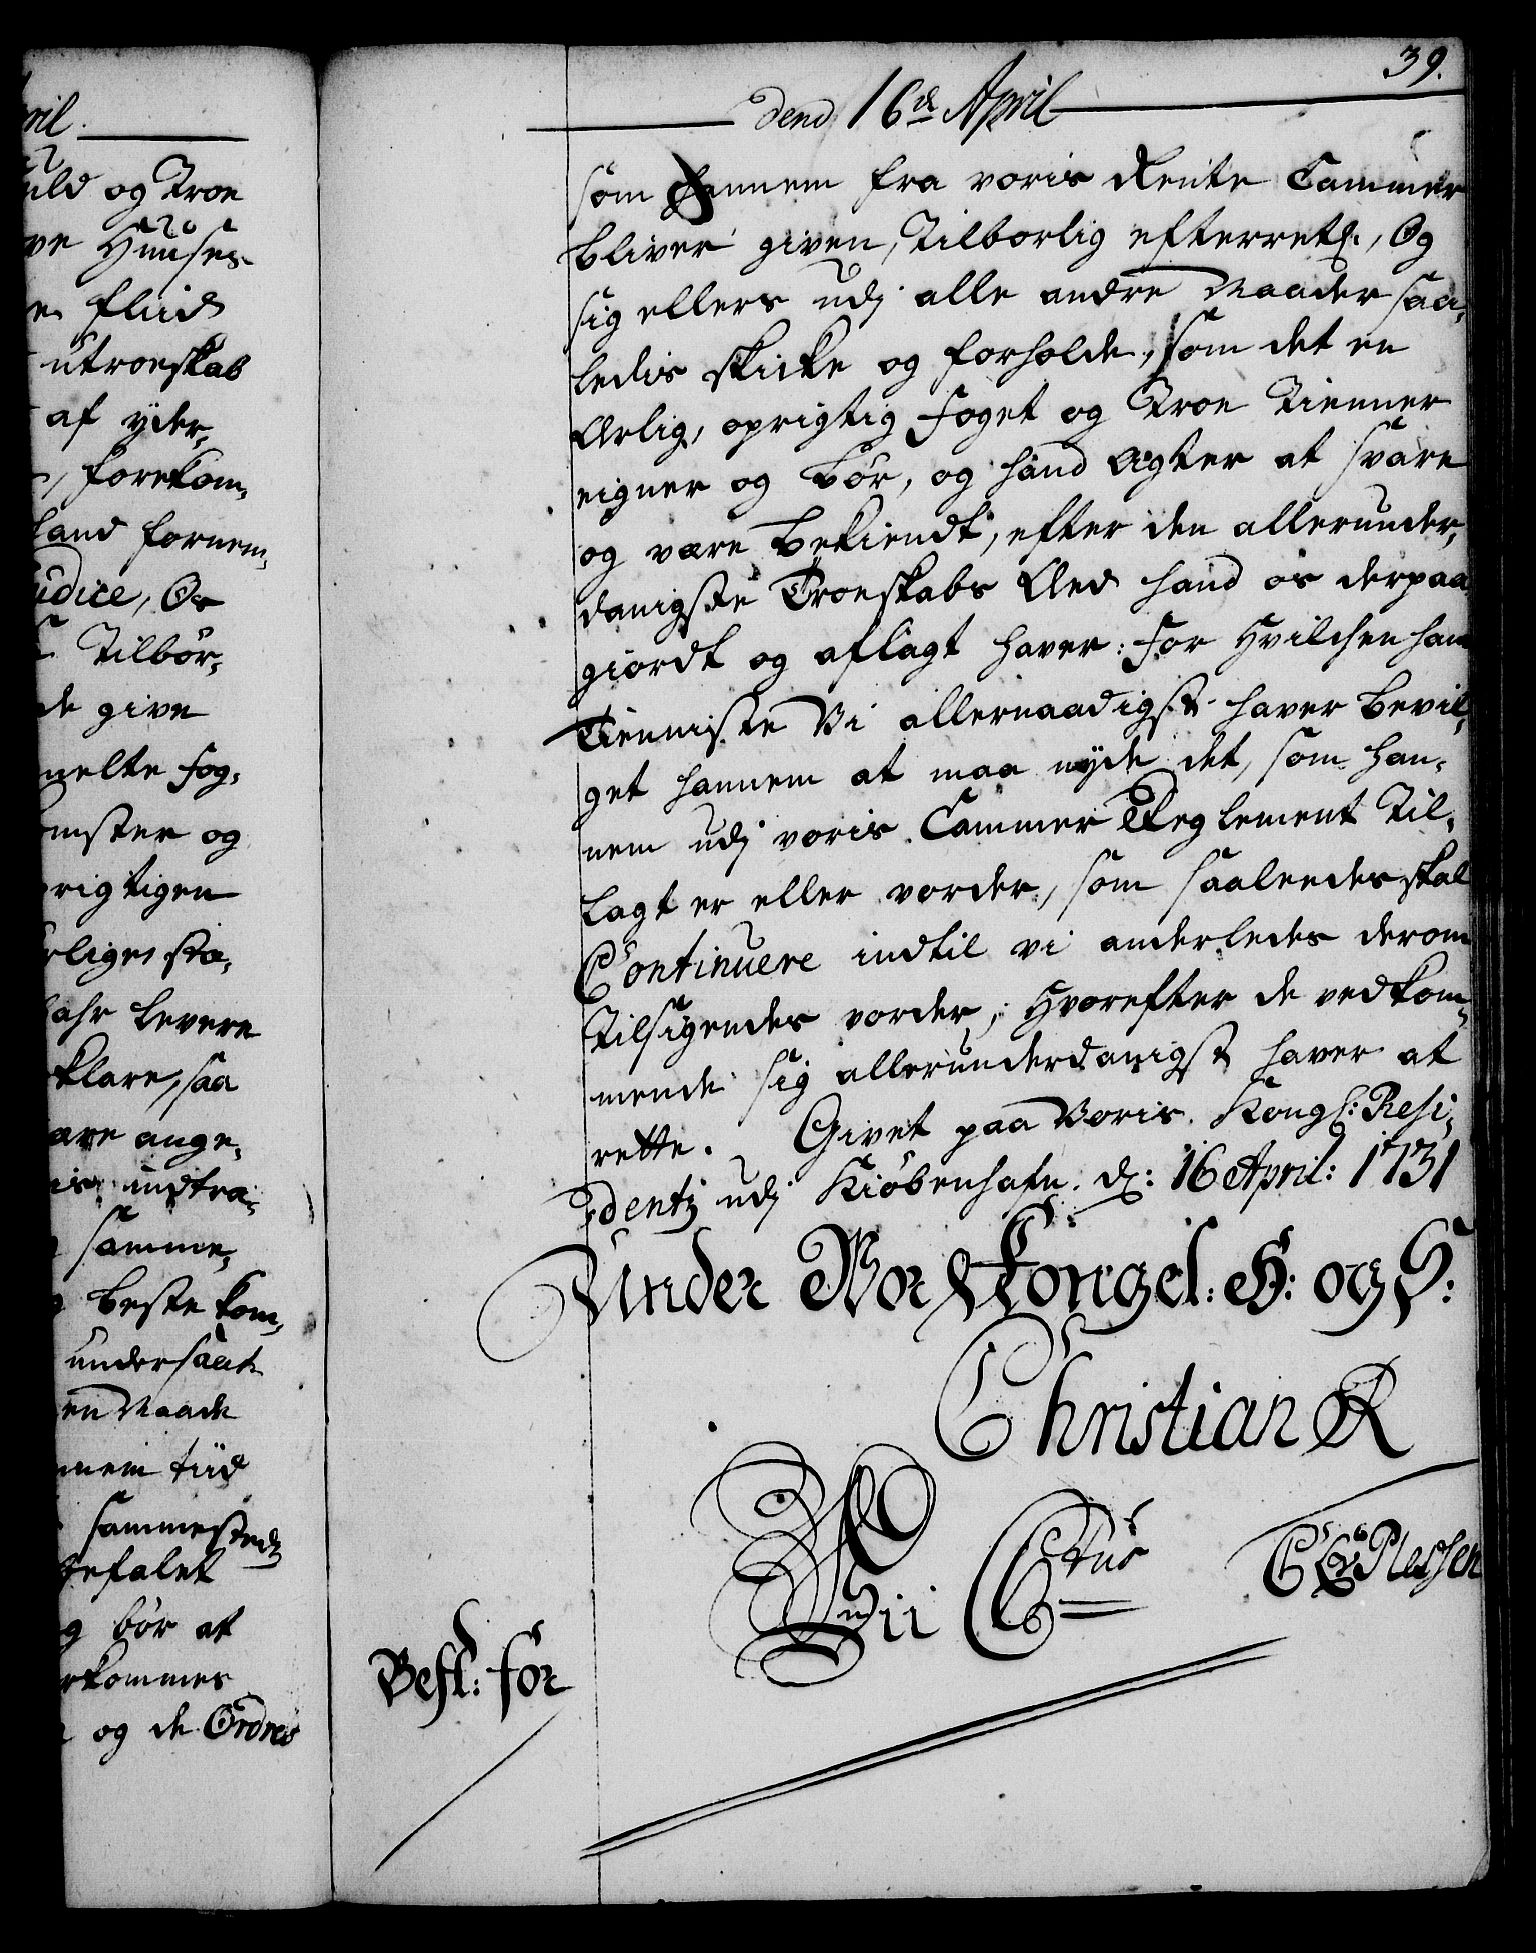 ril
uld og Troe
ve Huuses
fliid
utroeskab
af yder,
, forekom,
land fornem,
udice, Os
Tilbør,
de give
melte fog,
omster og
rigtigen
rliges sta,
ahr levere
klare, saa
are ange,
is: indtra,
samme,
beste kom,
undersaat
en Maade
mmem tiid
sammestedz
befalet
g bør at
rkommes
og de Ordres
39.
Dend 16de April
som Hannem fra voris Rente Cammer
bliver given, Tilborlig efterretl:, Og
sig ellers udj alle andre Maader saa,
ledis skicke og forholde, som det en
Ærlig, oprigtig foget og Troe Tienner
eigner og bør, og hand Agter at svare
og være bekiendt, efter den allerunder,
danigste Troeskabs Æed hand os derpaa
giordt og aflagt haver: for Hvilchen hans
Tienniste Vi allernaadigst haver bevil,
get hannem at maa nyde det, som han,
nem udj voris Cammer Reglement Til,
lagt er eller vorder, som saaleedes skal
Continuere indtil vi anderledes derom
Tilsigendes vorder; Hvorefter de vedkom,
mende sig allerunderdanigst haver at
rette. Givet paa Voris Kongl: Resi,
dentz udj Kiøbenhafn. d: 16 April: 1731
Under Vor Kongel: H: og S:
Christian R
C A v Plessen
Besl: for